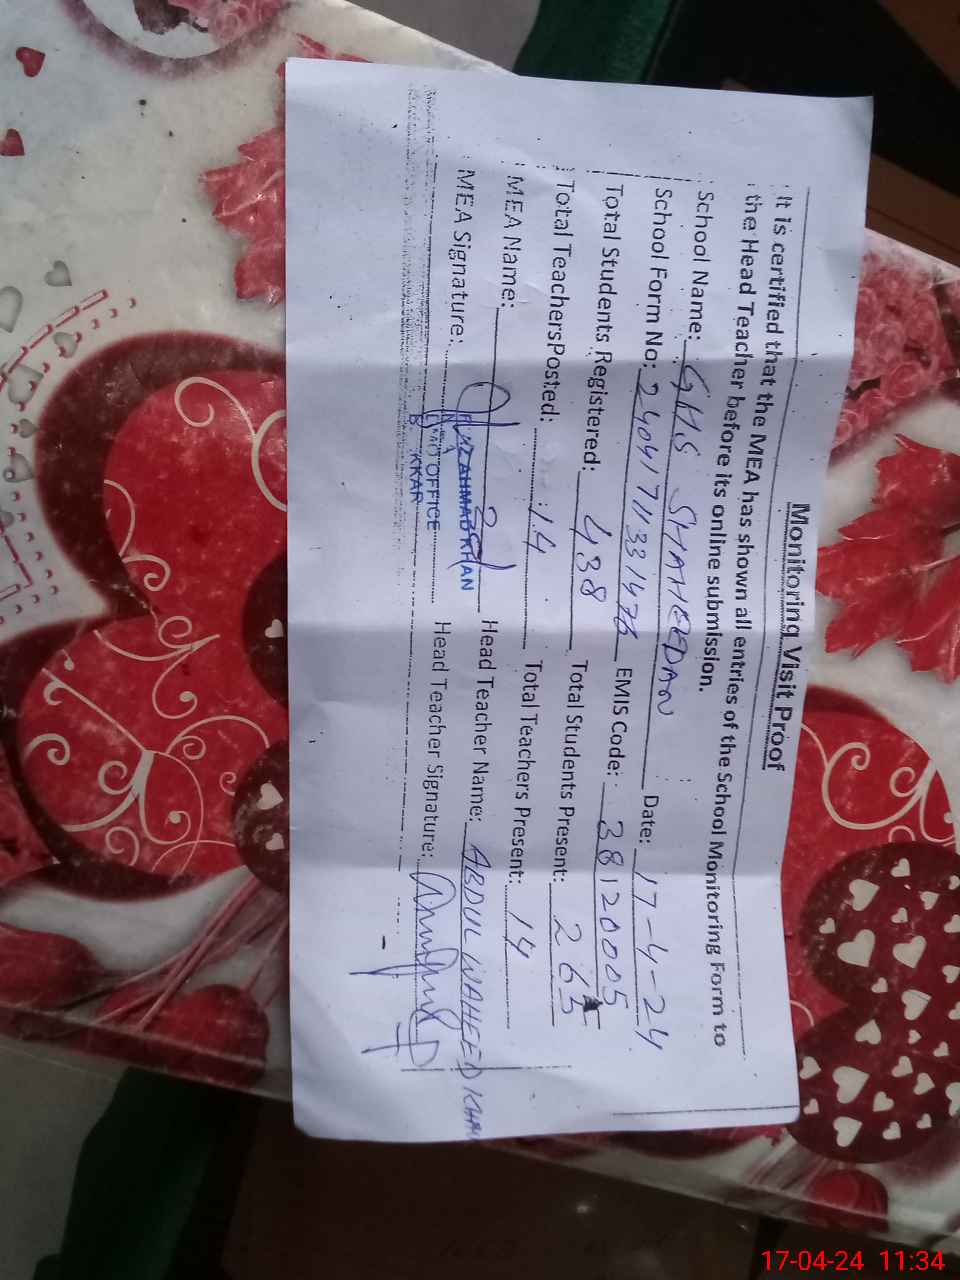 Monitoring Visit Proof
It is certified that the MEA has shown all entries of the School Monitoring Form to
the Head Teacher before its online submission.
School Name: GHS SHAHEEDAN Date: 17-4-24
School Form No: EMIS Code: 38120005
Total Students Registered: 438 Total Students Present: 265
Total TeachersPosted: 14 Total Teachers Present: 14
MEA Name: Head Teacher Name: ABDUL WAHEED KHAN
AHMAD KHAN
MEA Signature: Head Teacher Signature:
OFFICE
KKAR
17-04-24 11:34